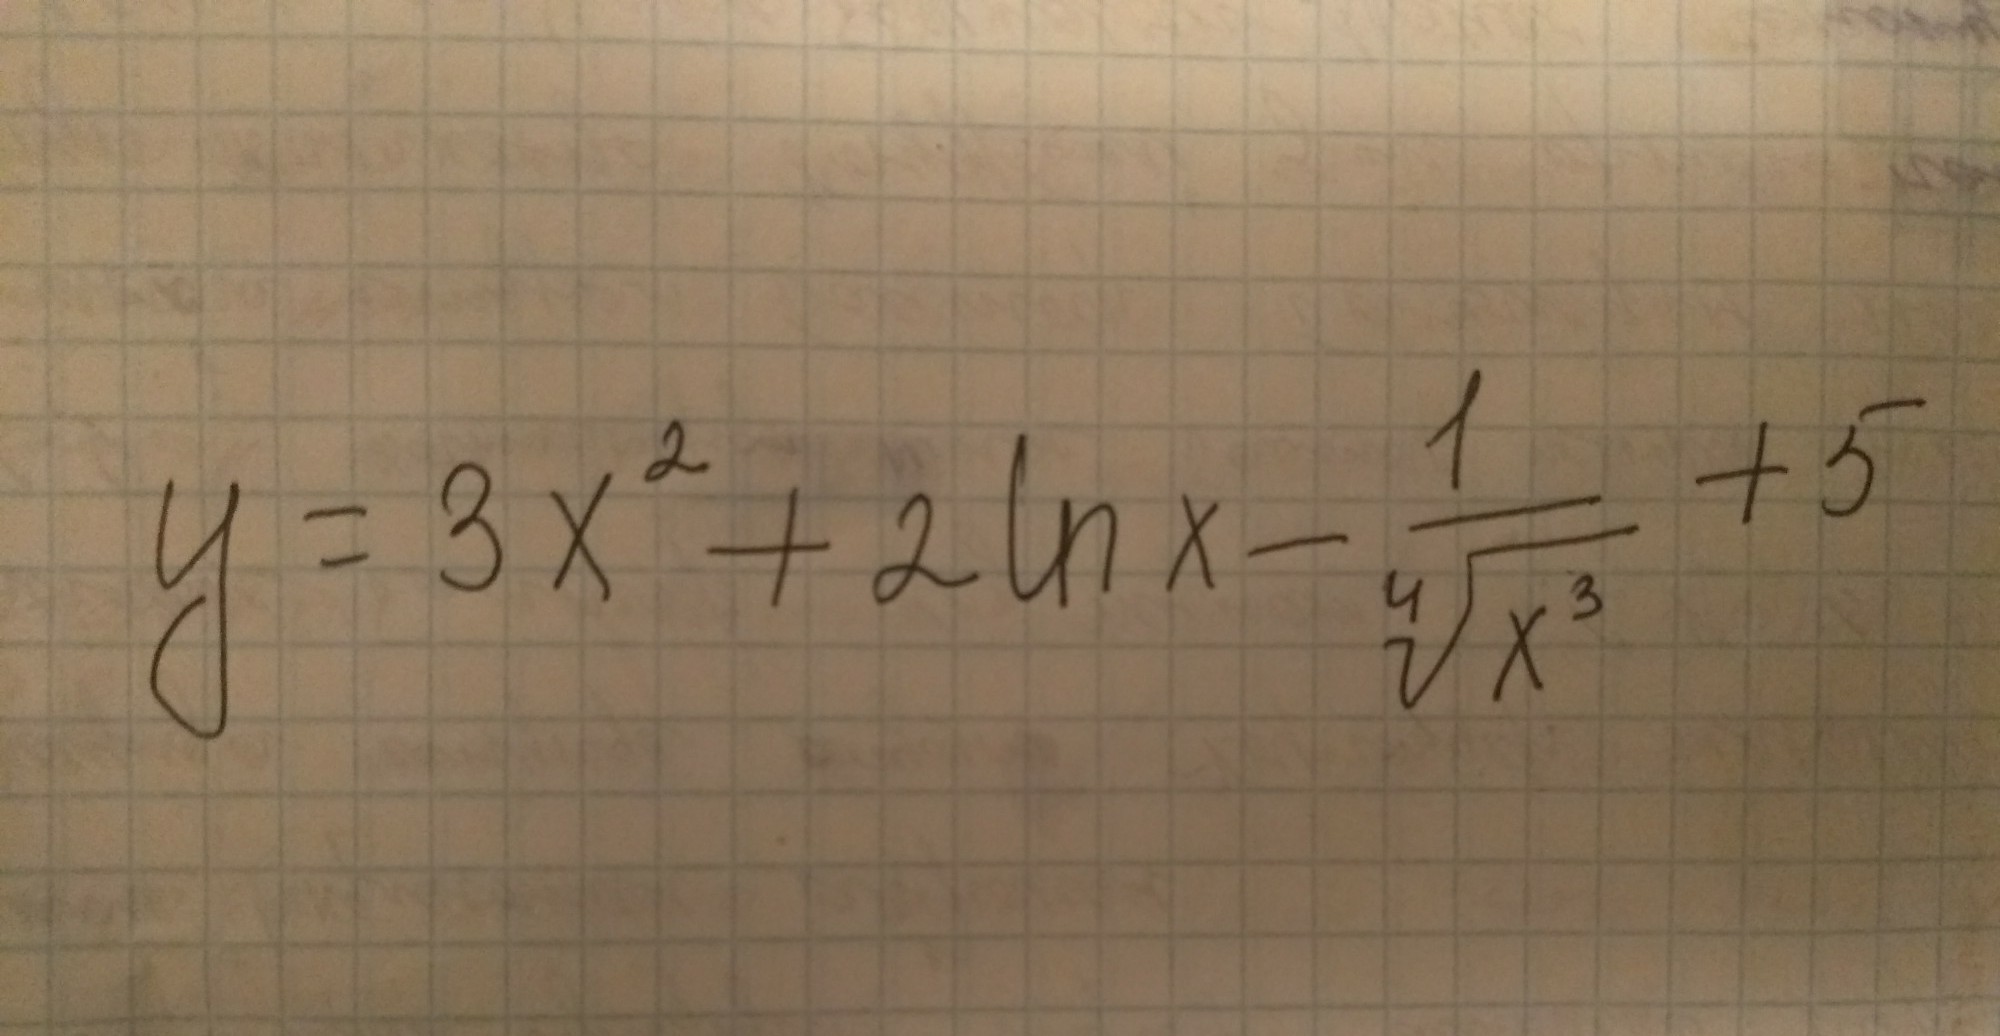 y = 3x² + 2 ln x − 1/⁴√x³ + 5